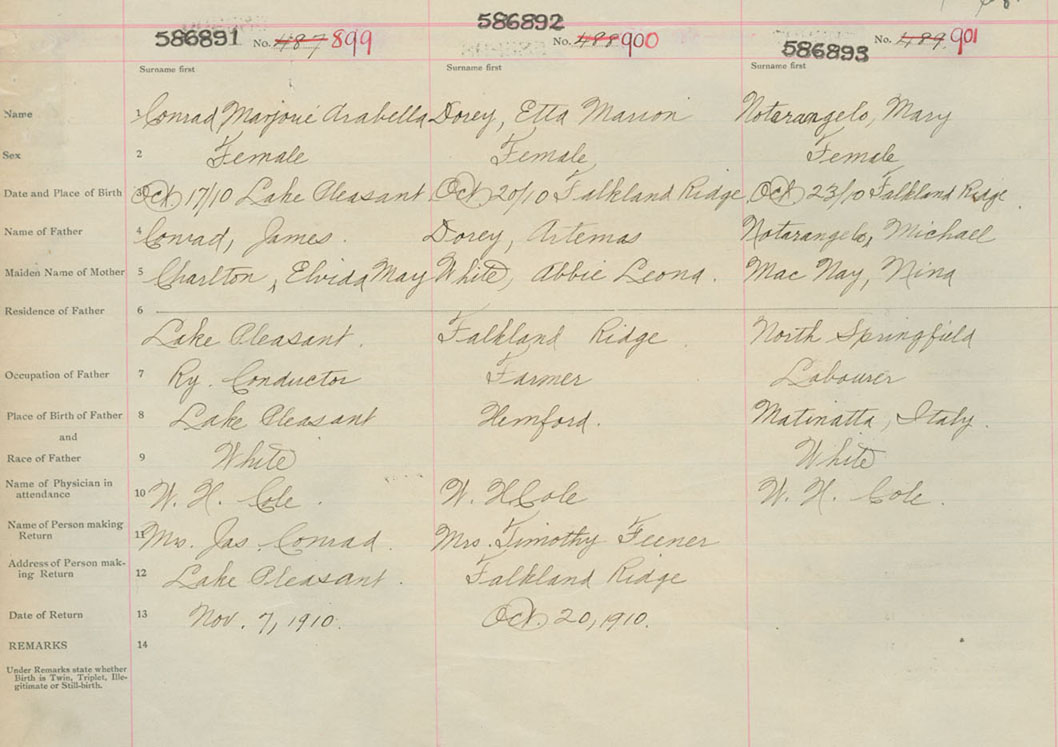 586891 No. 487 899
586892 No. 488 900
586893 No. 489 901
Surname first Surname first Surname first
Name 1 Conrad Marjorie Arabella Dorey, Etta Marion Notarangelo, Mary
Sex 2 Female Female Female
Date and Place of Birth 3 Oct 17/10 Lake Pleasant Oct 20/10 Falkland Ridge Oct 23/10 Falkland Ridge
Name of Father 4 Conrad, James. Dorey, Artemas Notarangelo, Michael
Maiden Name of Mother 5 Charlton, Elvida May White, Abbie Leona. Mac Nay, Nina
Residence of Father 6
Lake Pleasant. Falkland Ridge. North Springfield
Occupation of Father 7 Ry. Conductor Farmer Labourer
Place of Birth of Father 8 Lake Pleasant Hemford. Matinatta, Italy.
and
Race of Father 9 White White
Name of Physician in
attendance 10 W. H. Cole. W. H. Cole W. H. Cole.
Name of Person making
Return 11 Mrs. Jas. Conrad. Mrs. Timothy Feener
Address of Person mak-
ing Return 12 Lake Pleasant. Falkland Ridge
Date of Return 13 Nov. 7, 1910. Oct. 20, 1910.
REMARKS 14
Under Remarks state whether
Birth is Twin, Triplet, Ille-
gitimate or Still-birth.